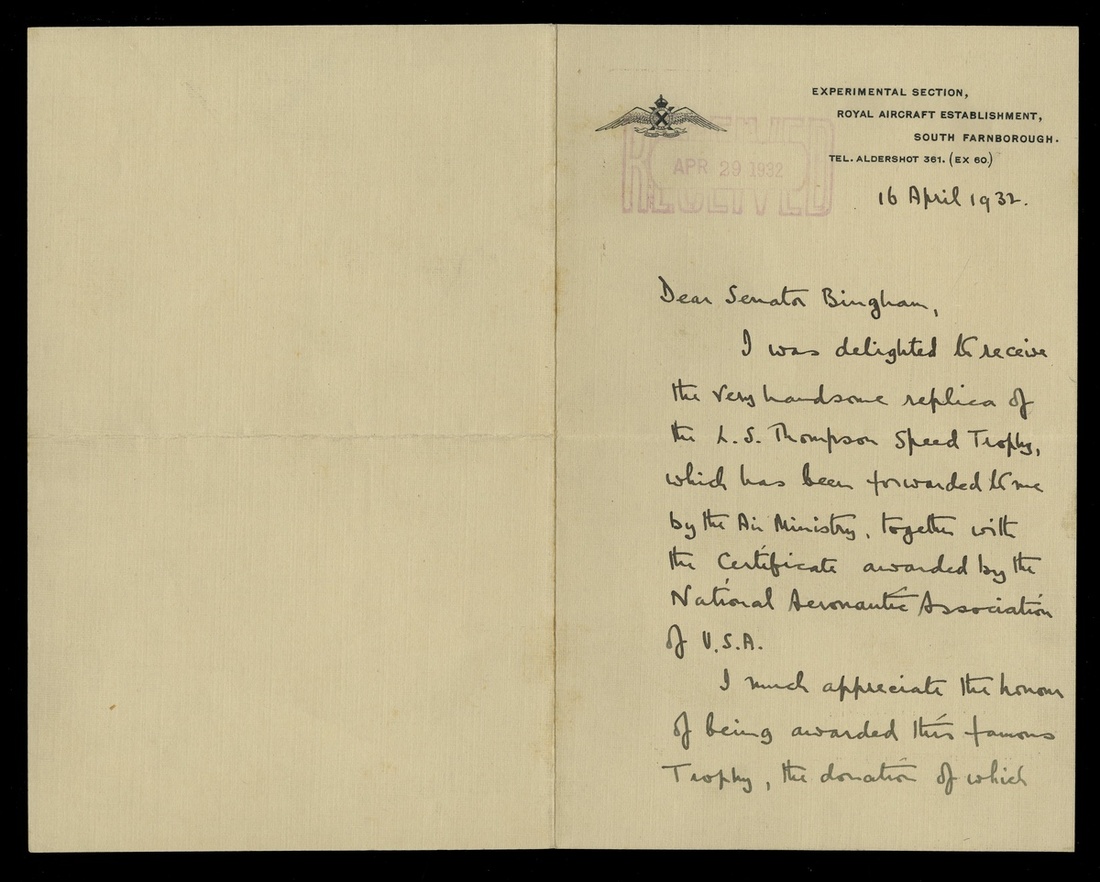 EXPERIMENTAL SECTION,
ROYAL AIRCRAFT ESTABLISHMENT,
SOUTH FARNBOROUGH.
TEL. ALDERSHOT 361. (EX 60)
RECEIVED
APR 29 1932
16 April 1932.
Dear Senator Bingham,
I was delighted to receive
the very handsome replica of
the L. S. Thompson Speed Trophy,
which has been forwarded to me
by the Air Ministry, together with
the Certificate awarded by the
National Aeronautic Association
of U.S.A.
I much appreciate the honour
of being awarded this famous
Trophy, the donation of which